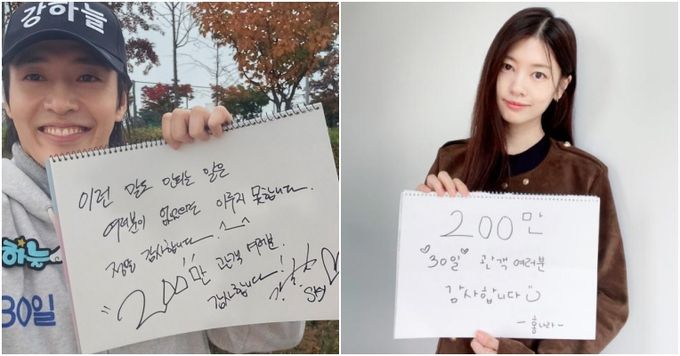 강하늘
이런 말도 안되는 일은
여러분이 없었으면 이루지 못합니다.
정말 감사합니다. ^_^
"200만 관객 여러분.
감사합니다!
SKY
하늘
30일
200만
♡30일♡ 관객 여러분
감사합니다
- 홍나라 -